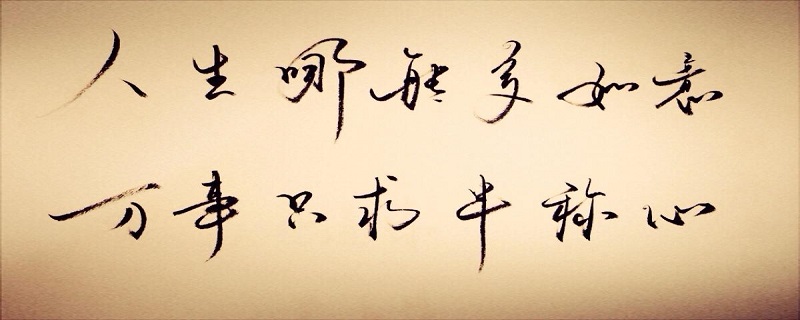 人生哪能多如意
万事只求半称心